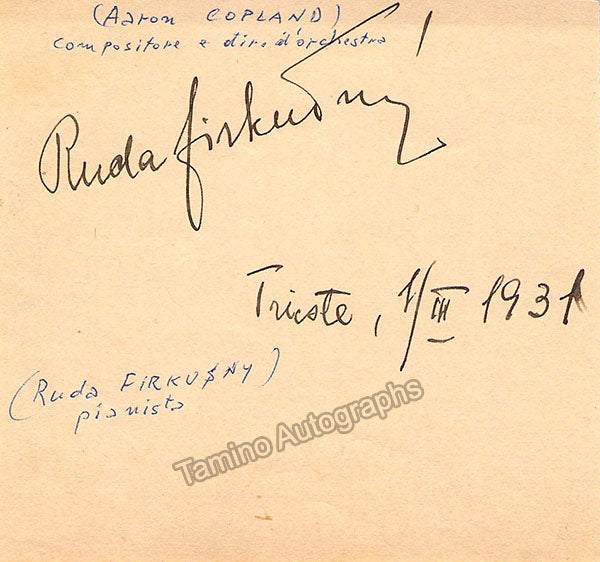 (Aaron COPLAND)
compositore e dir. d'orchestra
Ruda Firkušný
Trieste, 1/III 1931
(Ruda FIRKUŠNY)
pianista
Tamino Autographs